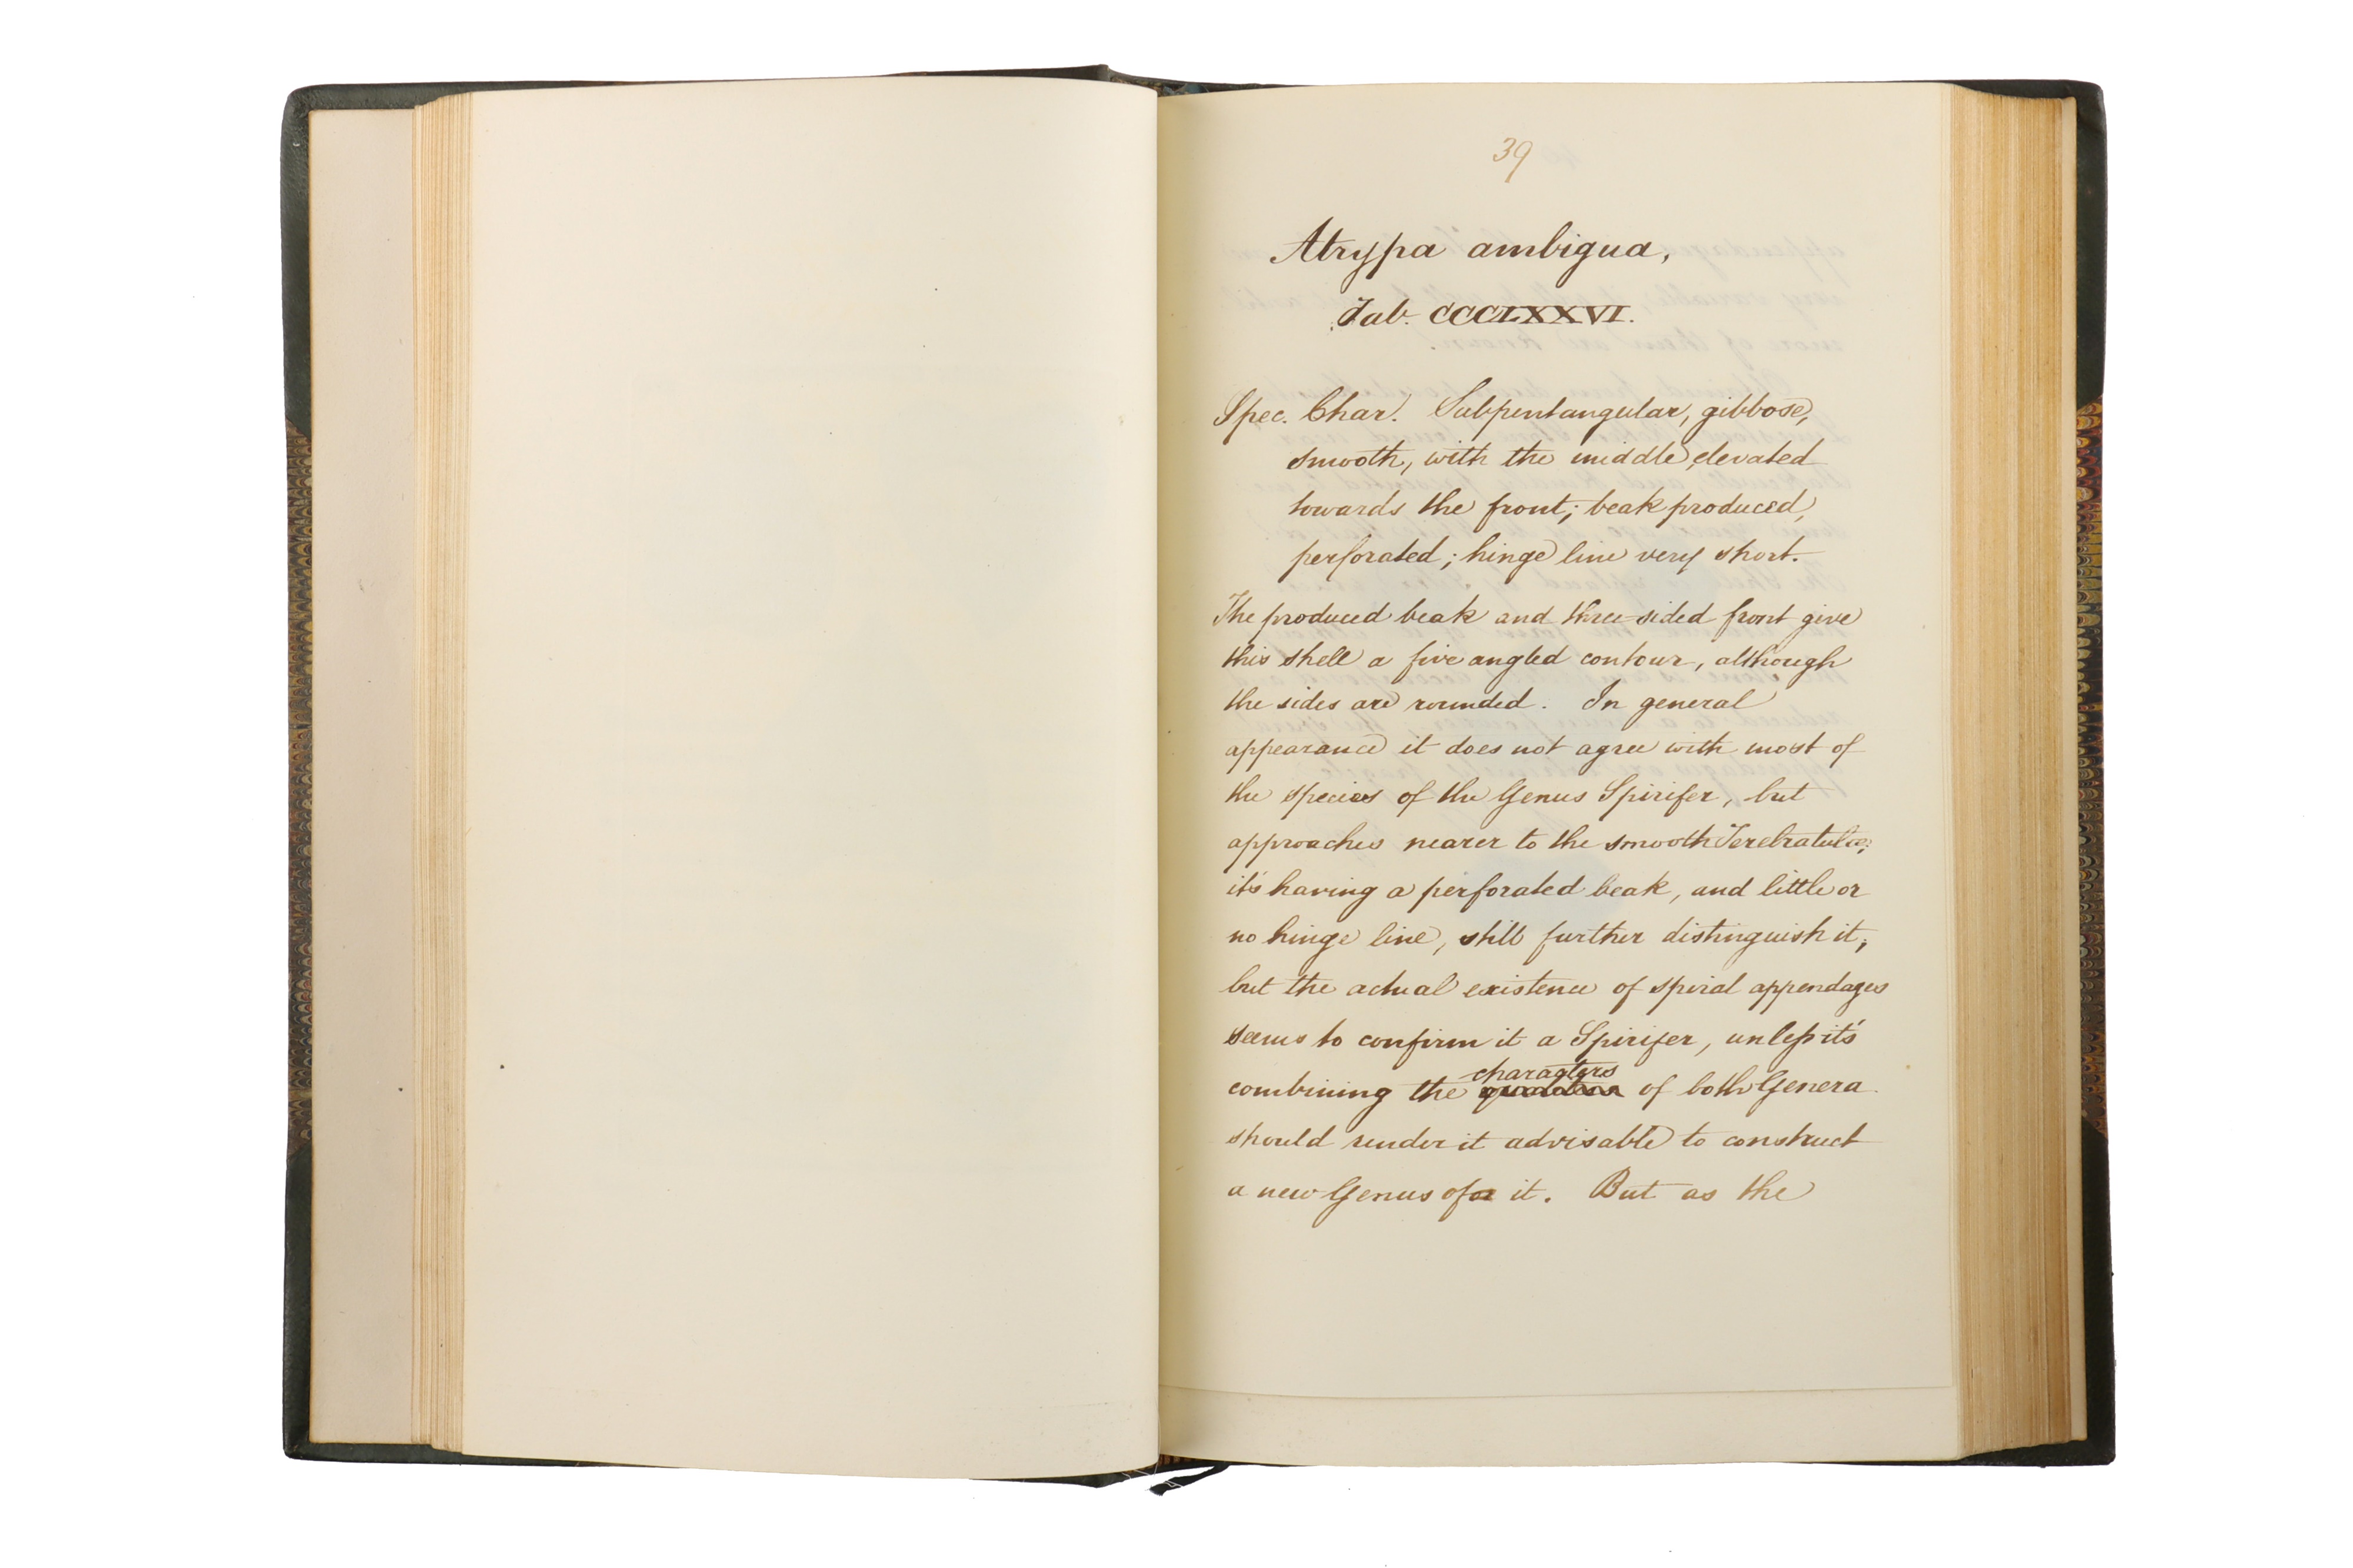 39
Atrypa ambigua,
Tab. CCCLXXVI.
Spec. Char. Subpentangular, gibbose,
smooth, with the middle elevated
towards the front; beak produced,
perforated; hinge line very short.
The produced beak and three-sided front give
this shell a five angled contour, although
the sides are rounded. In general
appearance it does not agree with most of
the species of the Genus Spirifer, but
approaches nearer to the smooth Terebratulæ;
it's having a perforated beak, and little or
no hinge line, still further distinguish it;
but the actual existence of spiral appendages
seems to confirm it a Spirifer, unless it's
characters
combining the of both Genera
should render it advisable to construct
a new Genus of it. But as the